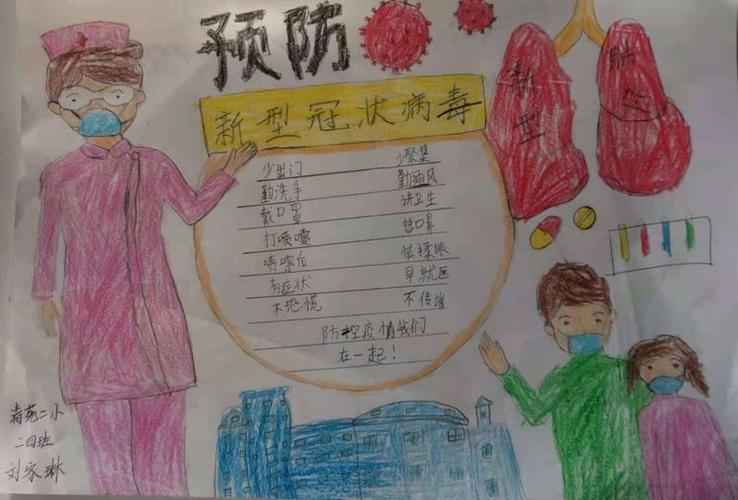 预防
新型冠状病毒
新型
肺炎
少出门 少聚集
勤洗手 勤通风
戴口罩 讲卫生
打喷嚏 捂口鼻
喷嚏后 慎揉眼
有症状 早就医
不恐慌 不传谣
防控疫情我们
在一起！
二四班
刘家琳